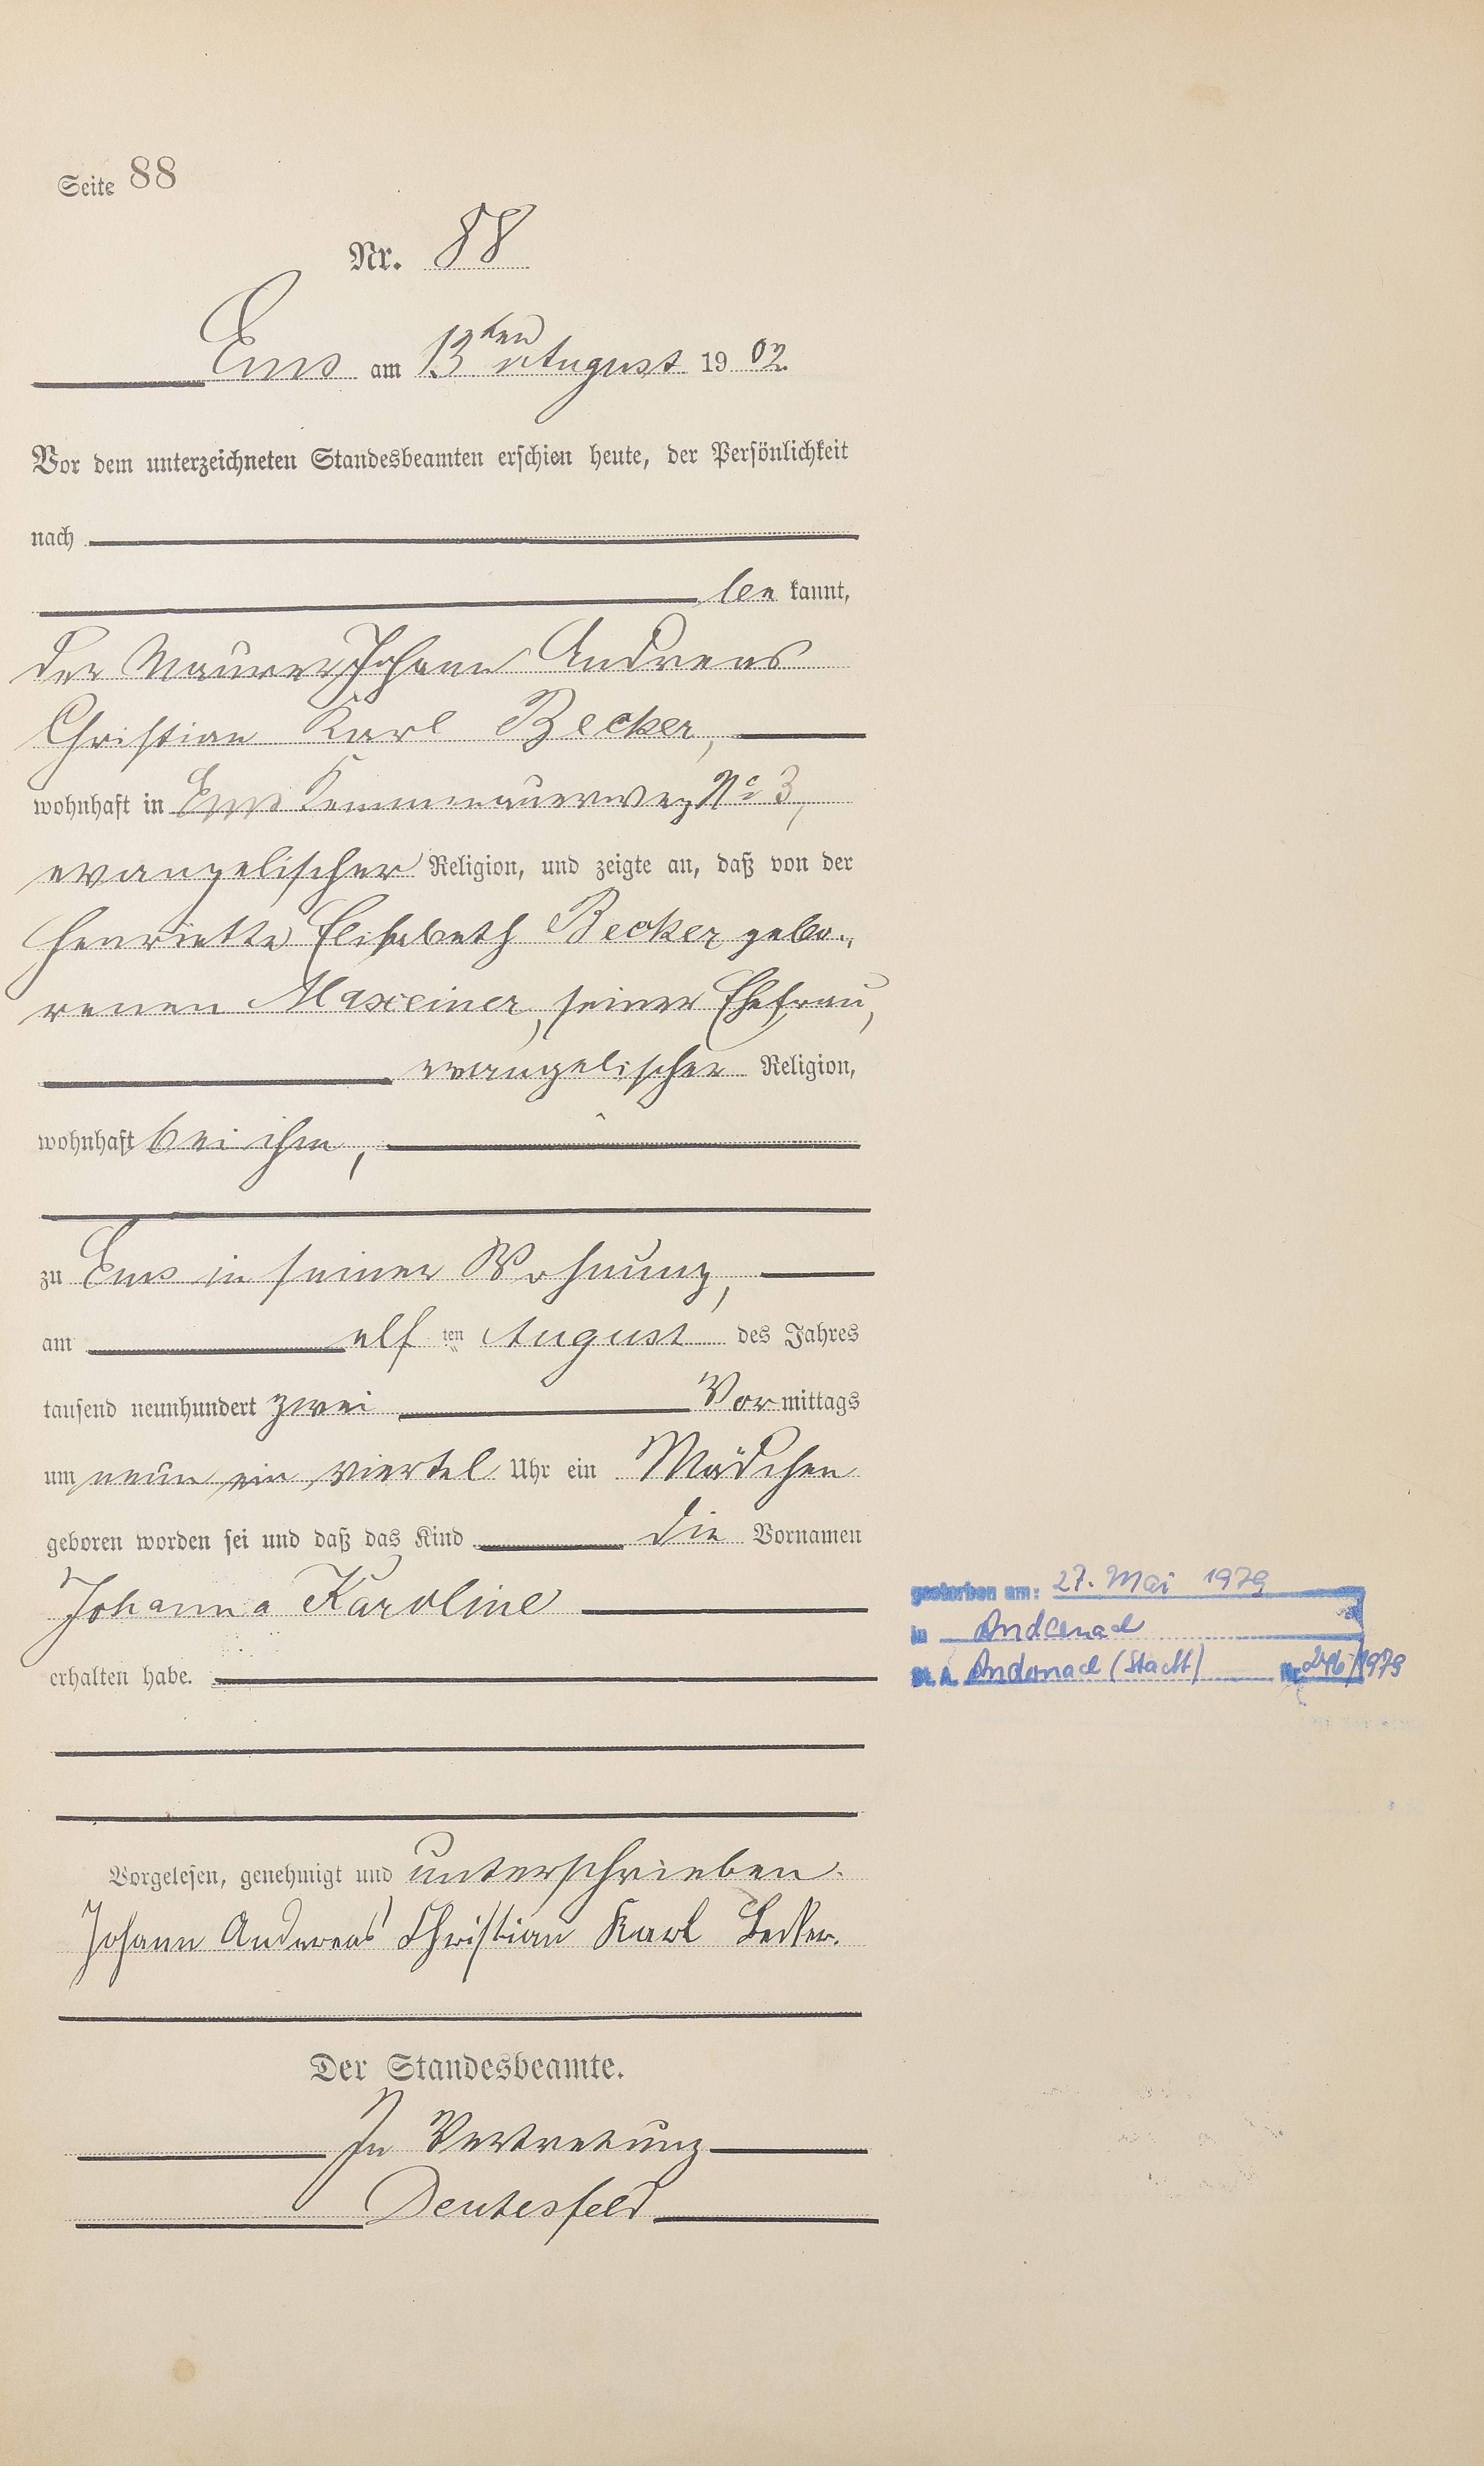 Seite 88
Nr. 88
Ems am 13ten August 1902.
Vor dem unterzeichneten Standesbeamten erschien heute, der Persönlichkeit
nach
be kannt,
der Maurer Johann Andreas
Christian Karl Becker,
wohnhaft in Ems Kemmenauerweg No 3,
evangelischer Religion, und zeigte an, daß von der
Henriette Elisabeth Becker gebo-
renen Maxeiner, seiner Ehefrau,
evangelischer Religion,
wohnhaft bei ihm,
zu Ems in seiner Wohnung,
am elf ten August des Jahres
tausend neunhundert zwei Vormittags
um neun ein viertel Uhr ein Mädchen
geboren worden sei und daß das Kind die Vornamen
Johanna Karoline
erhalten habe.
gestorben am: 27. Mai 1979
in Andernach
St. A. Andernach (Stadt) Nr. 246/1979
Vorgelesen, genehmigt und unterschrieben.
Johann Andereas Christian Karl Becker.
Der Standesbeamte.
In Vertretung
Deutesfeld